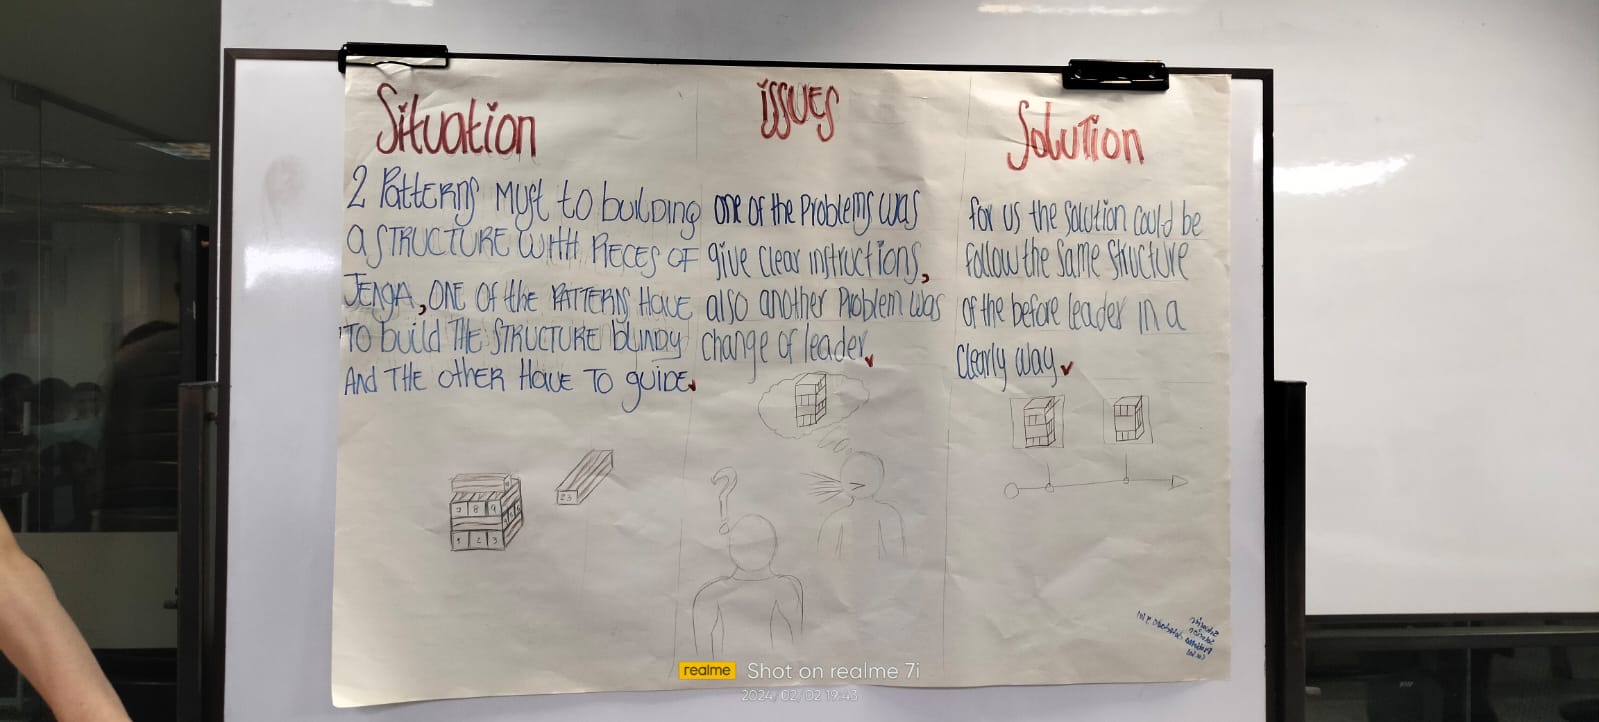 Situation
2 Patterns Must to building
a STRUCTURE WITH PIECES OF
JENGA, ONE OF the PATTERNS HAVE
TO build THE STRUCTURE blindy
AND THE other HAVE TO guide.
issues
one of the Problems was
give clear instructions,
also another Problem was
change of leader.
Solution
for us the solution could be
follow the same structure
of the before leader in a
clearly way.
7 8 9
1 2 3
23
?
realme Shot on realme 7i
2024/02/02 19:43